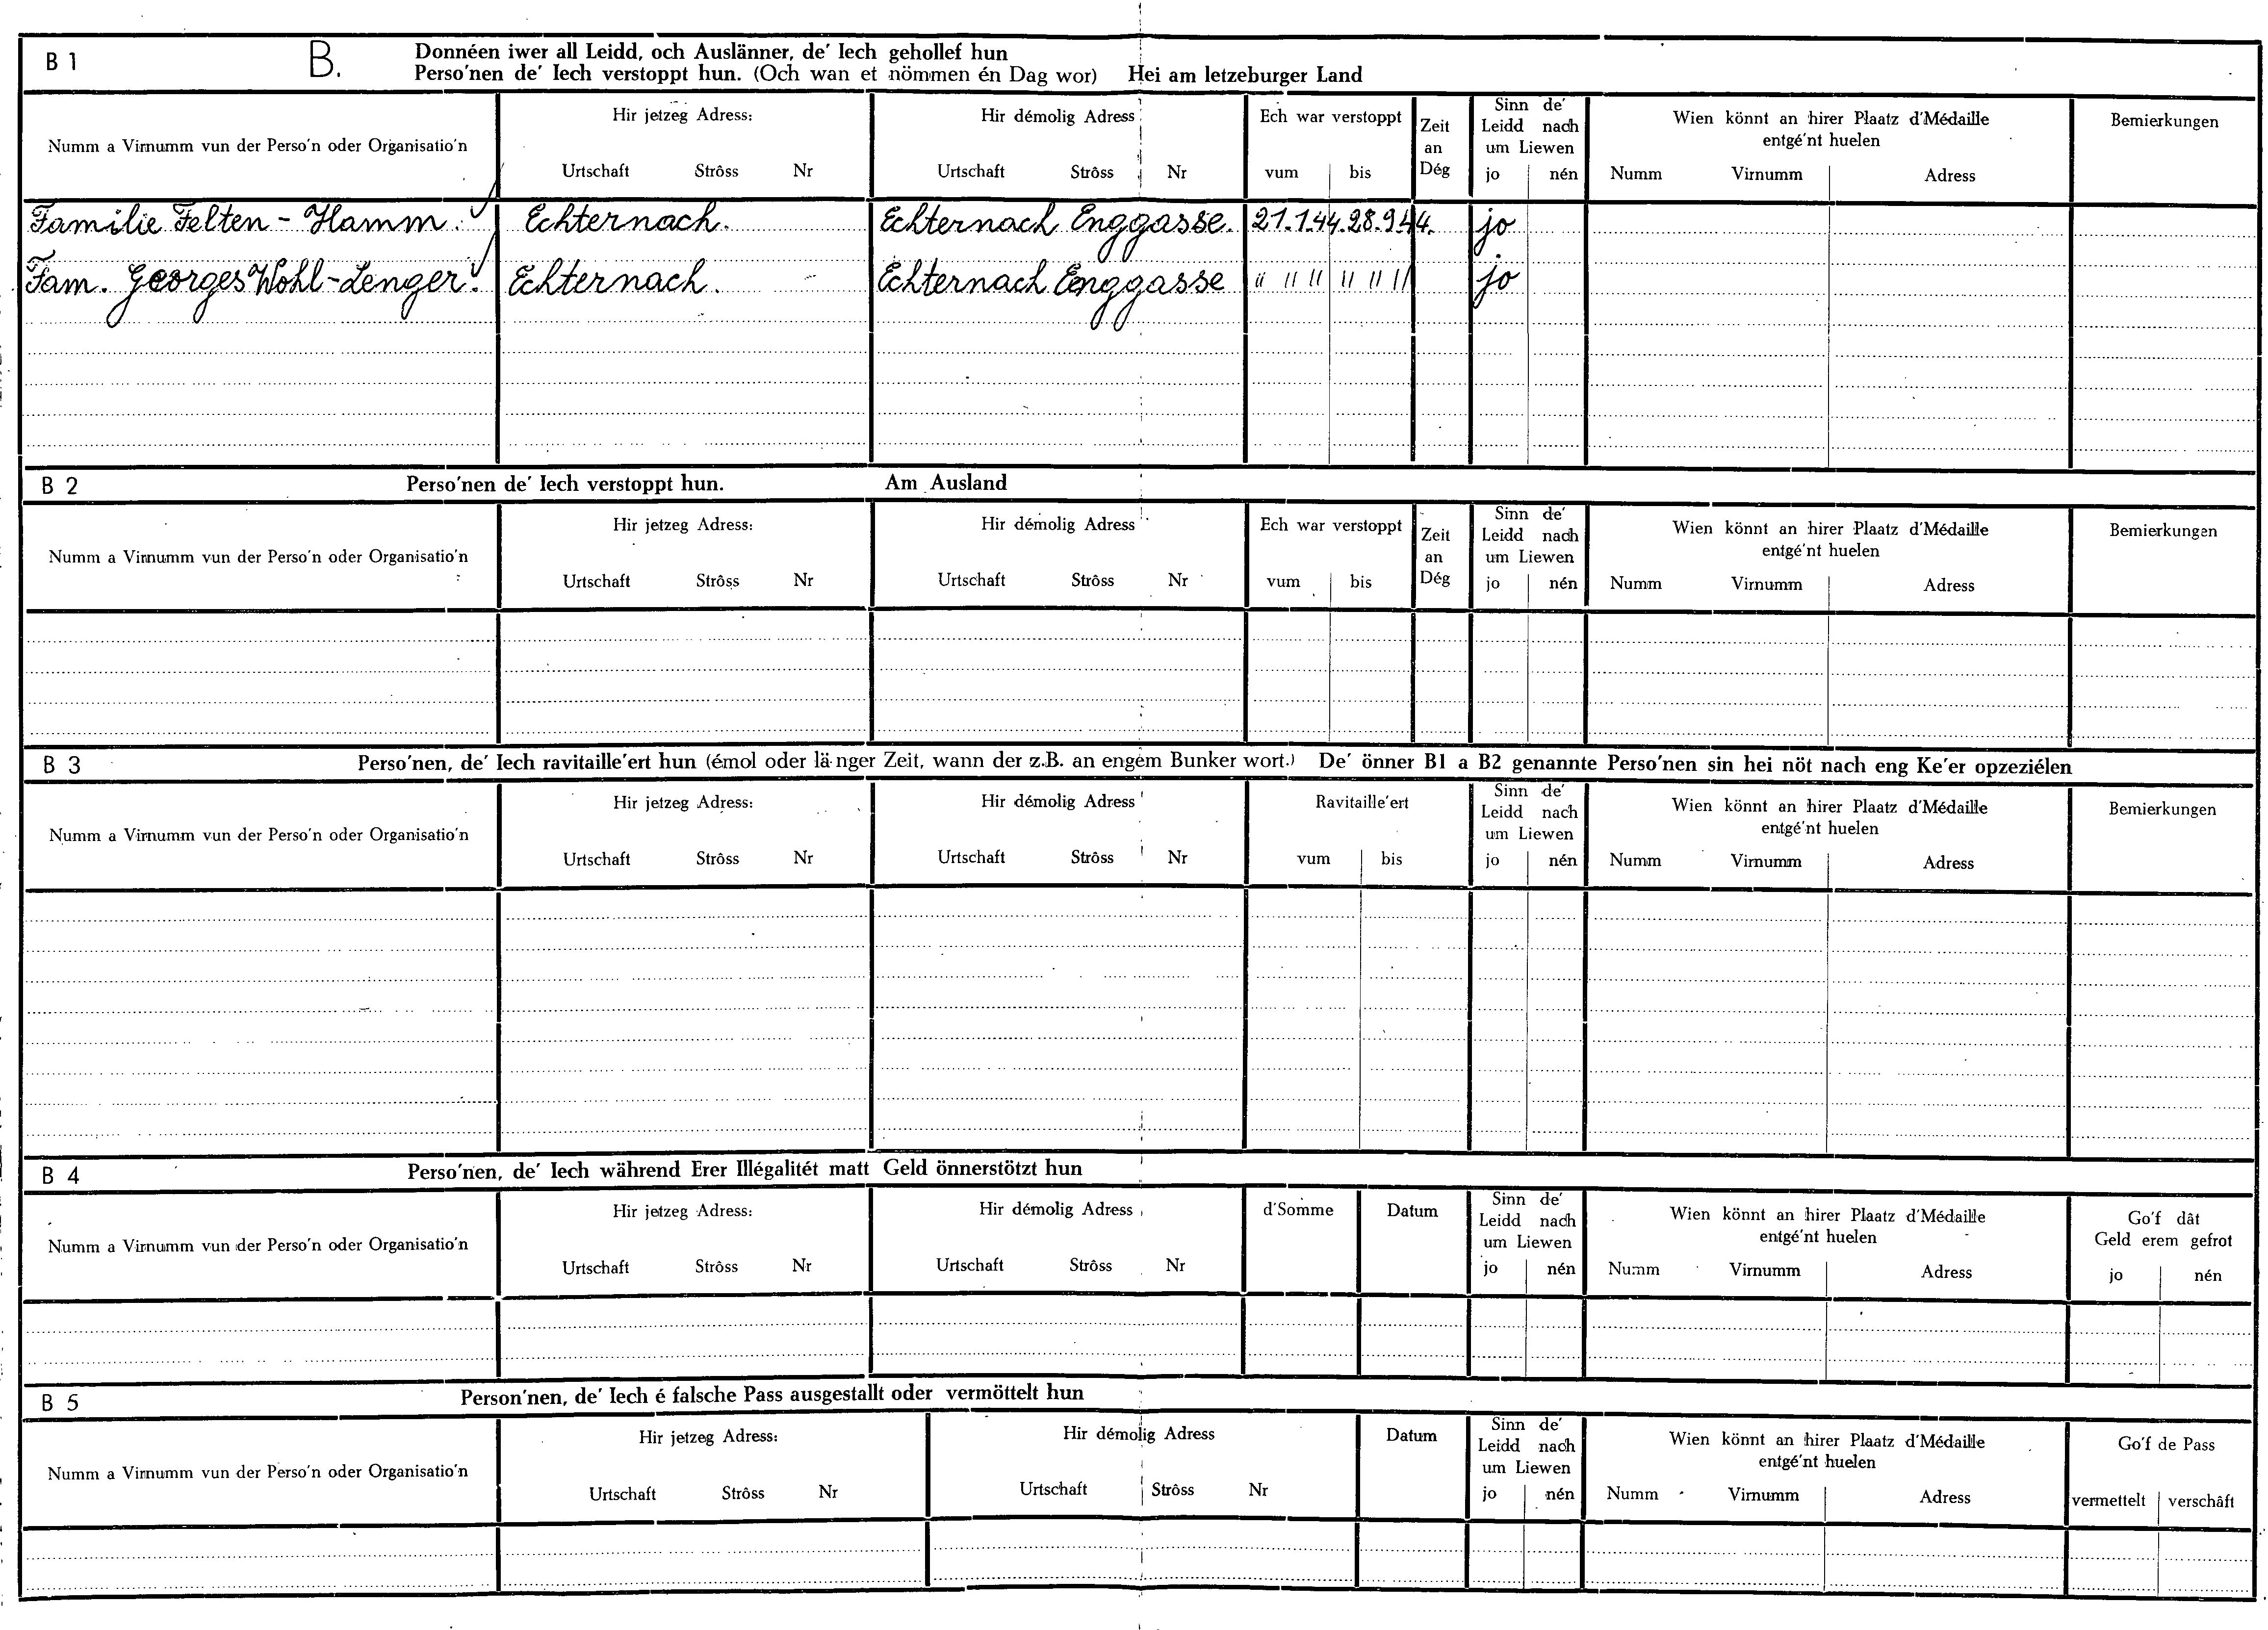 B 1 B. Donnéen iwer all Leidd, och Auslänner, de' Iech gehollef hun
Perso'nen de' Iech verstoppt hun. (Och wan et nömmen én Dag wor) Hei am letzeburger Land
Numm a Virnumm vun der Perso'n oder Organisatio'n
Hir jetzeg Adress:
Urtschaft Strôss Nr
Hir démolig Adress
Urtschaft Strôss Nr
Ech war verstoppt
vum bis
Zeit
an
Dég
Sinn de'
Leidd nach
um Liewen
jo nén
Wien könnt an hirer Plaatz d'Médaille
entgé'nt huelen
Numm Virnumm Adress
Bemierkungen
Familie Felten - Hamm. Echternach. Echternach Enggasse. 21.1.44. 28.9.44. jo
Fam. Georges Wohl-Lenger. Echternach. Echternach Enggasse " " " " " " jo
B 2 Perso'nen de' Iech verstoppt hun. Am Ausland
Numm a Virnumm vun der Perso'n oder Organisatio'n
Hir jetzeg Adress:
Urtschaft Strôss Nr
Hir démolig Adress
Urtschaft Strôss Nr
Ech war verstoppt
vum bis
Zeit
an
Dég
Sinn de'
Leidd nach
um Liewen
jo nén
Wien könnt an hirer Plaatz d'Médaille
entgé'nt huelen
Numm Virnumm Adress
Bemierkungen
B 3 Perso'nen, de' Iech ravitaille'ert hun (émol oder länger Zeit, wann der z.B. an engem Bunker wort.) De' önner B1 a B2 genannte Perso'nen sin hei nöt nach eng Ke'er opzeziélen
Numm a Virnumm vun der Perso'n oder Organisatio'n
Hir jetzeg Adress:
Urtschaft Strôss Nr
Hir démolig Adress
Urtschaft Strôss Nr
Ravitaille'ert
vum bis
Sinn de'
Leidd nach
um Liewen
jo nén
Wien könnt an hirer Plaatz d'Médaille
entgé'nt huelen
Numm Virnumm Adress
Bemierkungen
B 4 Perso'nen, de' Iech während Erer Illégalitét matt Geld önnerstötzt hun
Numm a Virnumm vun der Perso'n oder Organisatio'n
Hir jetzeg Adress:
Urtschaft Strôss Nr
Hir démolig Adress
Urtschaft Strôss Nr
d'Somme
Datum
Sinn de'
Leidd nach
um Liewen
jo nén
Wien könnt an hirer Plaatz d'Médaille
entgé'nt huelen
Numm Virnumm Adress
Go'f dât
Geld erem gefrot
jo nén
B 5 Person'nen, de' Iech é falsche Pass ausgestallt oder vermöttelt hun
Numm a Virnumm vun der Perso'n oder Organisatio'n
Hir jetzeg Adress:
Urtschaft Strôss Nr
Hir démolig Adress
Urtschaft Strôss Nr
Datum
Sinn de'
Leidd nach
um Liewen
jo nén
Wien könnt an hirer Plaatz d'Médaille
entgé'nt huelen
Numm Virnumm Adress
Go'f de Pass
vermettelt verschâft